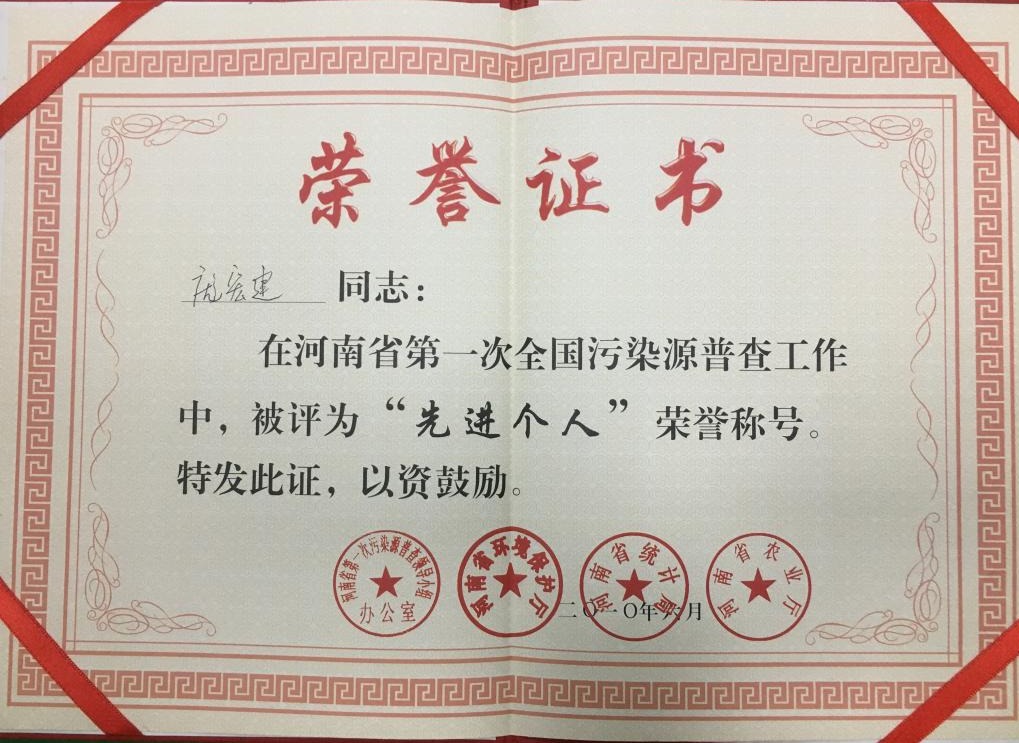 荣誉证书
宏建 同志：
在河南省第一次全国污染源普查工作
中，被评为“先进个人”荣誉称号。
特发此证，以资鼓励。
河南省第一次污染源普查领导小组
办公室
河南省环境保护厅
河南省统计局
河南省农业厅
二〇一〇年六月